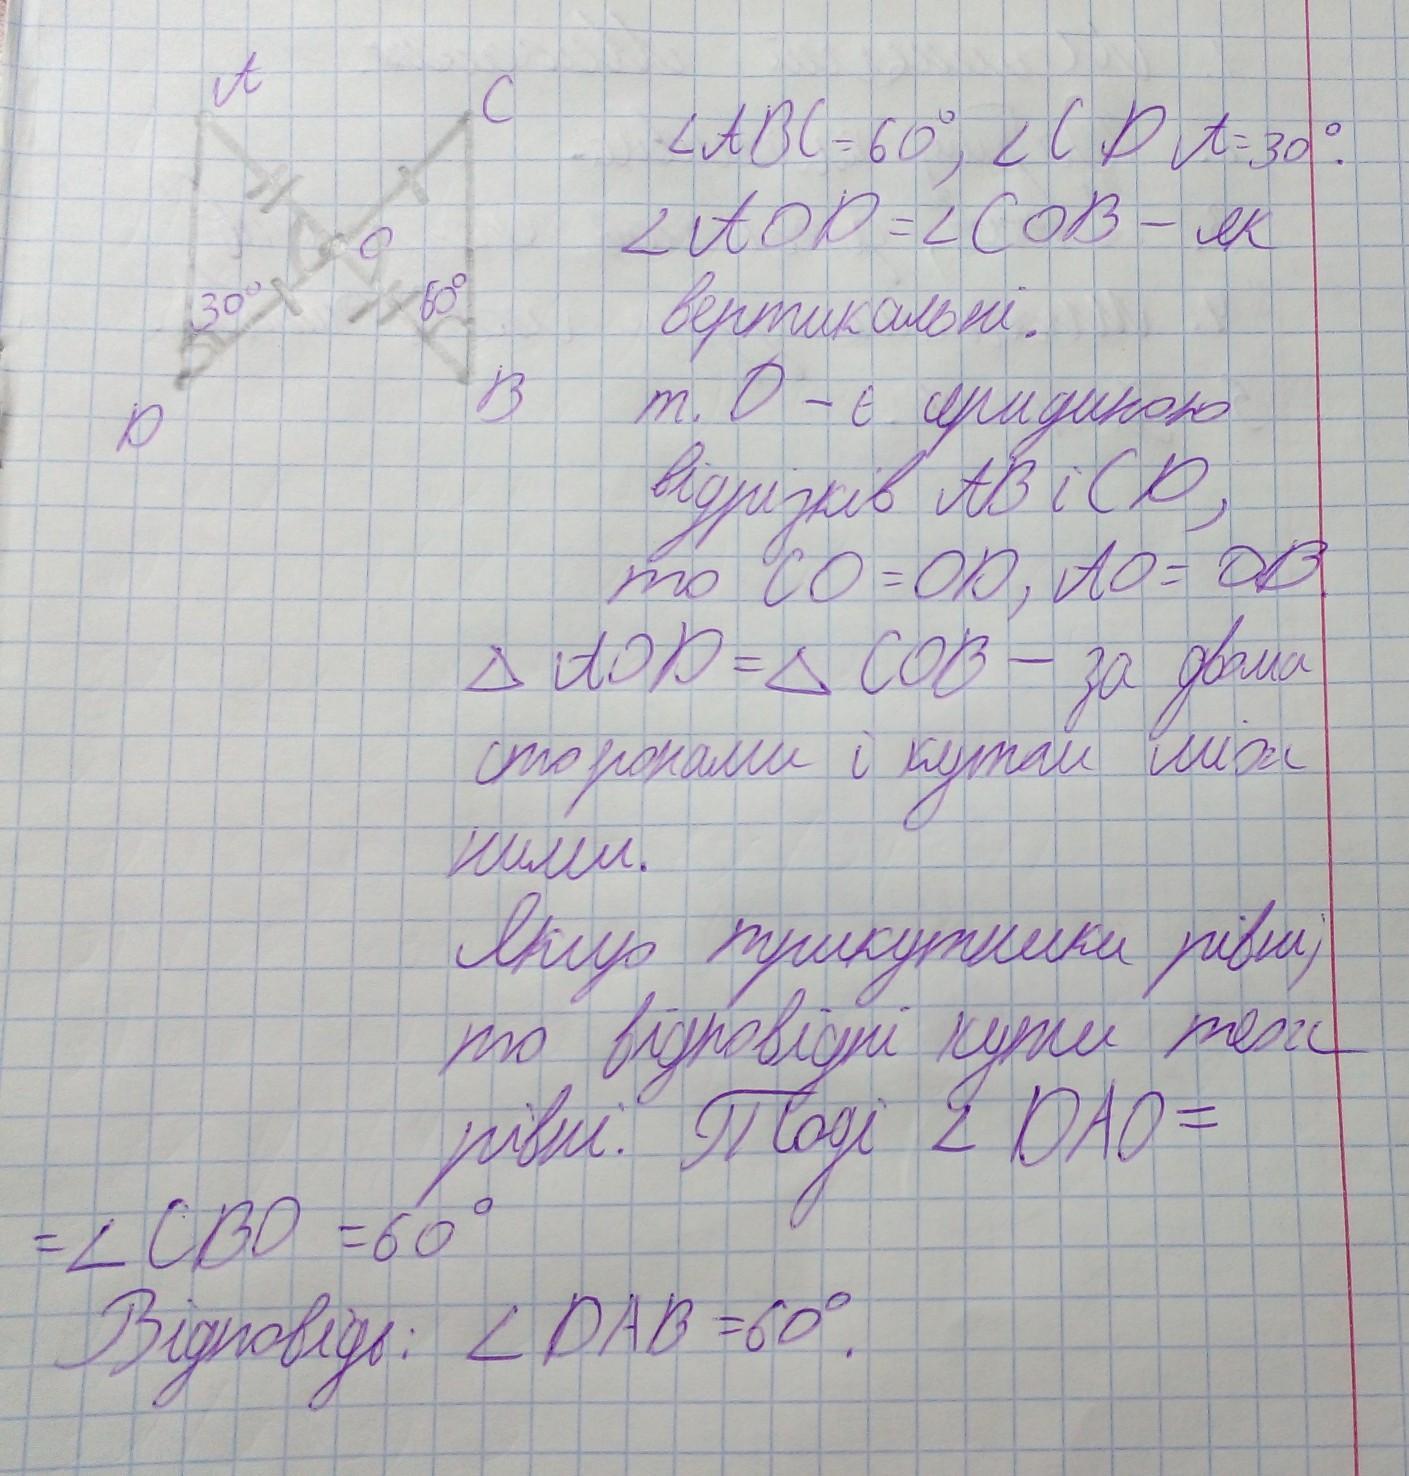 A
C
O
30°
60°
D
B
∠ABC=60°, ∠CDA=30°.
∠AOD=∠COB – як
вертикальні.
т. O – є серидиною
відрізків AB і CD,
то CO=OD, AO=OB
△AOD=△COB – за двома
сторонами і кутом між
ними.
Якщо трикутники рівні,
то відповідні кути теж
рівні. Тоді ∠DAO=
=∠CBO=60°
Відповідь: ∠DAB=60°.